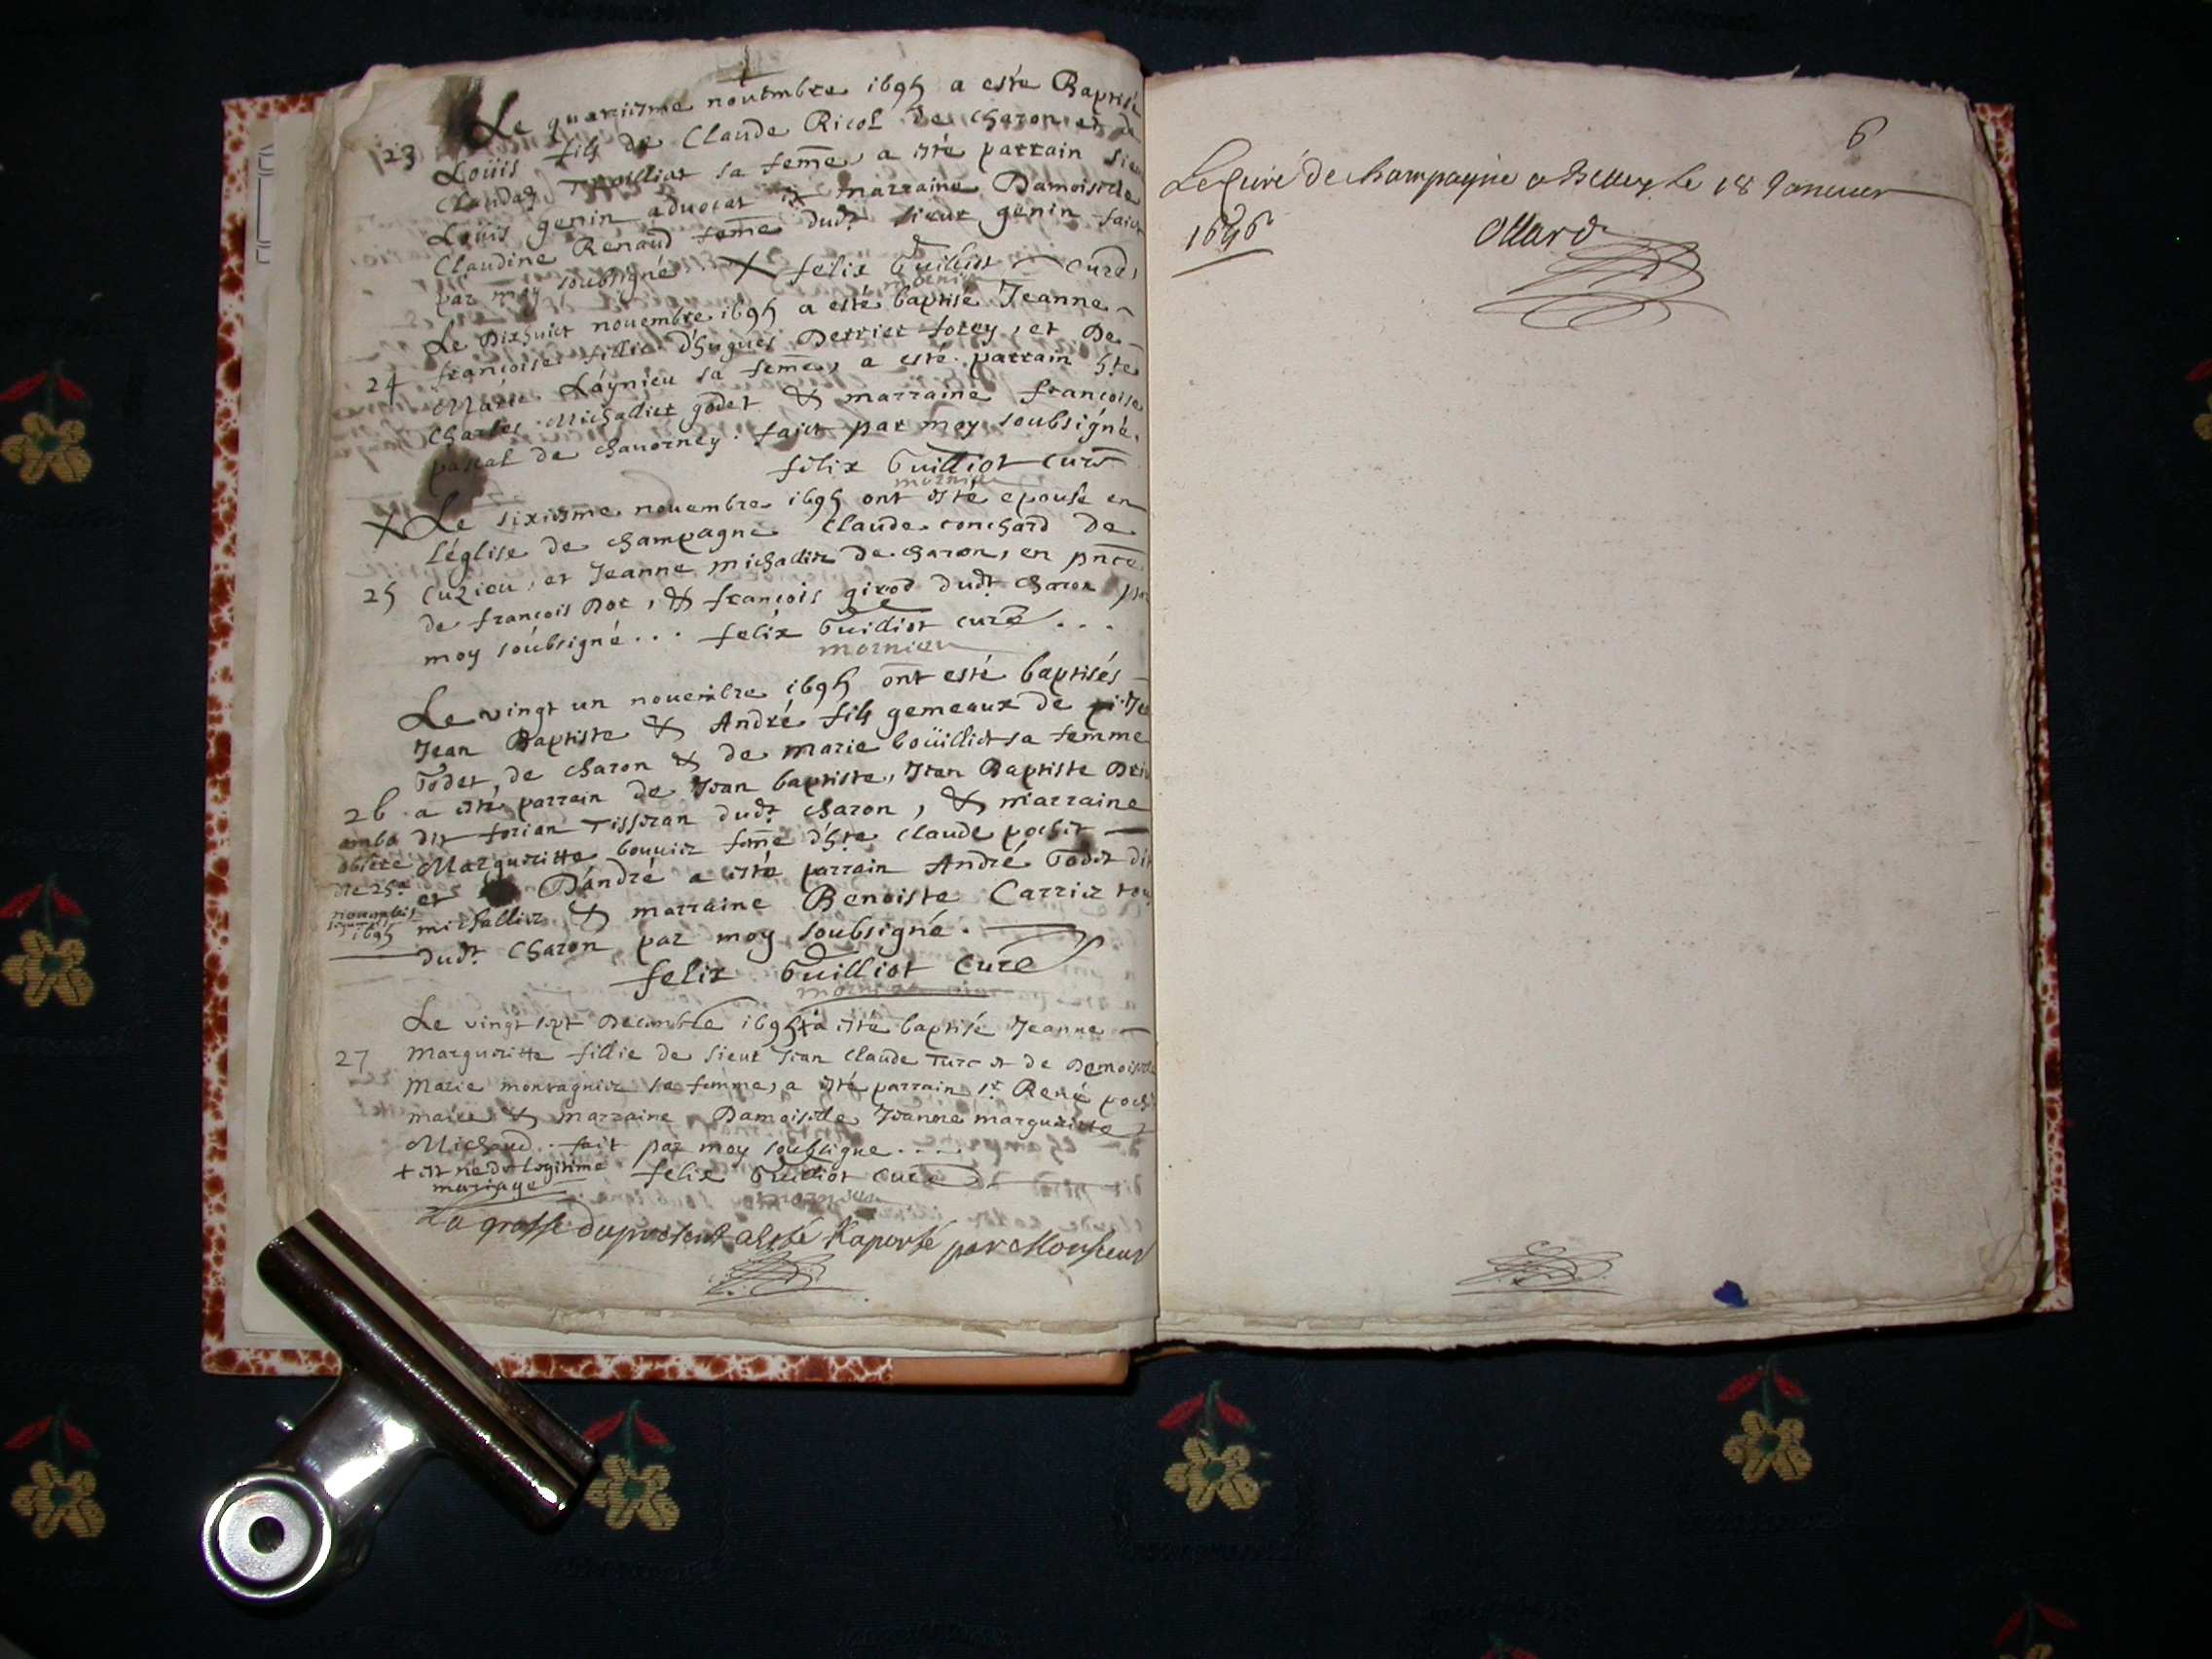 Le quatriesme nouembre 1695 a esté Baptisé
23 Loüis fils de Claude Ricol de charon et de
Claudaz sa feme a esté parrain sieur
Loüis genin aduocat et marraine Damoiselle
Claudine Renaud feme dudt sieur genin faict
par moy soubsigné felix Guilliot curé
mornieu
Le Dixhuict nouembre 1695 a esté baptisé Jeanne
françoise fillie d'hugues Derrier forey, et De
24 Marie Laynieu sa feme, a esté parrain hte
Charles Michallier godet & marraine françoise
pascal de chauorney. faict par moy soubsigné.
félix Guilliot curé
mornieu
X Le sixiesme nouembre 1695 ont esté epousé en
l'église de champagne Claude conchard De
Cuzieu, et Jeanne michallier de charon, en pnce
25 de françois Dor, & françois girod dudt charon par
moy soubsigné... felix Guilliot curé...
mornieu
Le vingt un nouembre 1695 ont esté baptisés
Jean Baptiste & André fils gemeaux de
Godet, de charon & de marie boüillier sa femme
26 a esté parrain de Jean baptiste, Jean Baptiste
ambo dit forian Tisseran dudt charon, & marraine
obiere Margueritte bouuier feme d'hte claude pochet
die 25a et D'andré a esté parrain André Godet dit
nouembris 1695 michallier & marraine Benoiste Carrier tous
dudt Charon par moy soubsigné.
felix Guilliot Curé
mornieu
Le vingt sept Decembre 1695 + a esté baptisé Jeanne
27 Margueritte fillie de sieur Jean Claude Turc et de Demoiselle
Marie montagnier sa femme, a esté parrain sr. René
maire & marraine Damoiselle Jeanne margueritte
Michaud. fait par moy soubsigne....
+ est née de legitime mariage felix Guilliot Curé
mornieu
La grosse du present a esté Raporté par Monsieur
6
Le Curé de champagne a Belley le 18 Januier
1696 Ollard